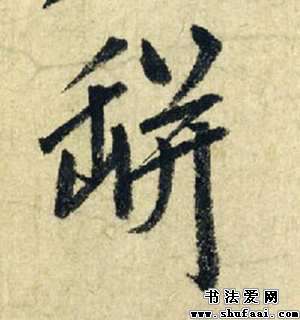 缾
书法爱网
www.shufaai.com